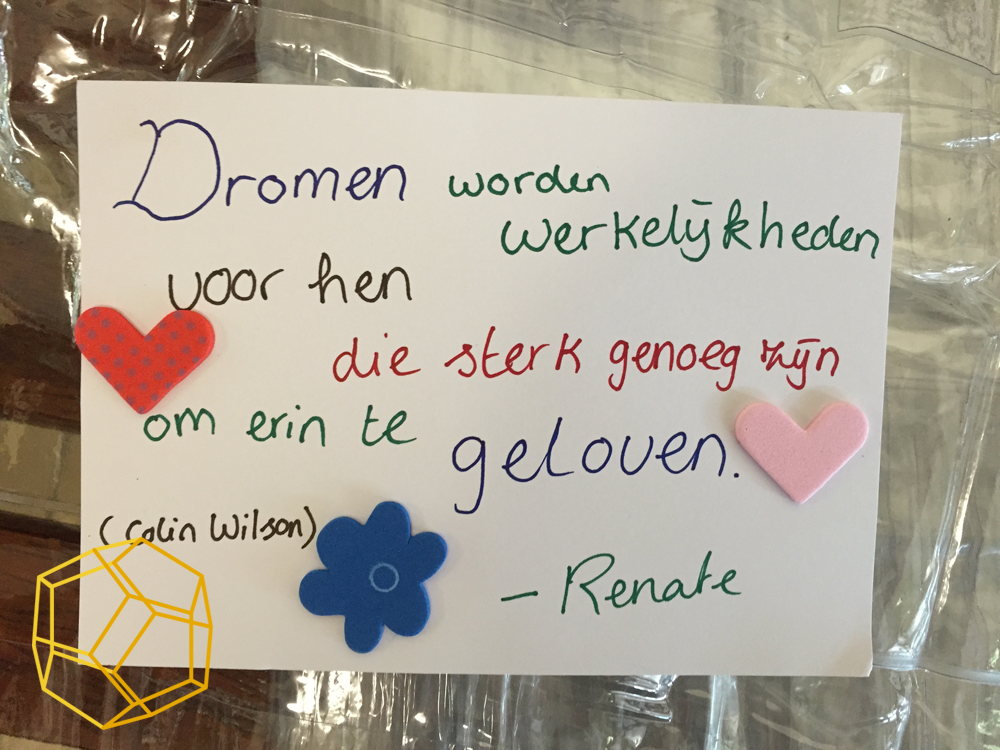 Dromen worden
werkelijkheden
voor hen
die sterk genoeg zijn
om erin te
geloven.
(Colin Wilson)
- Renate